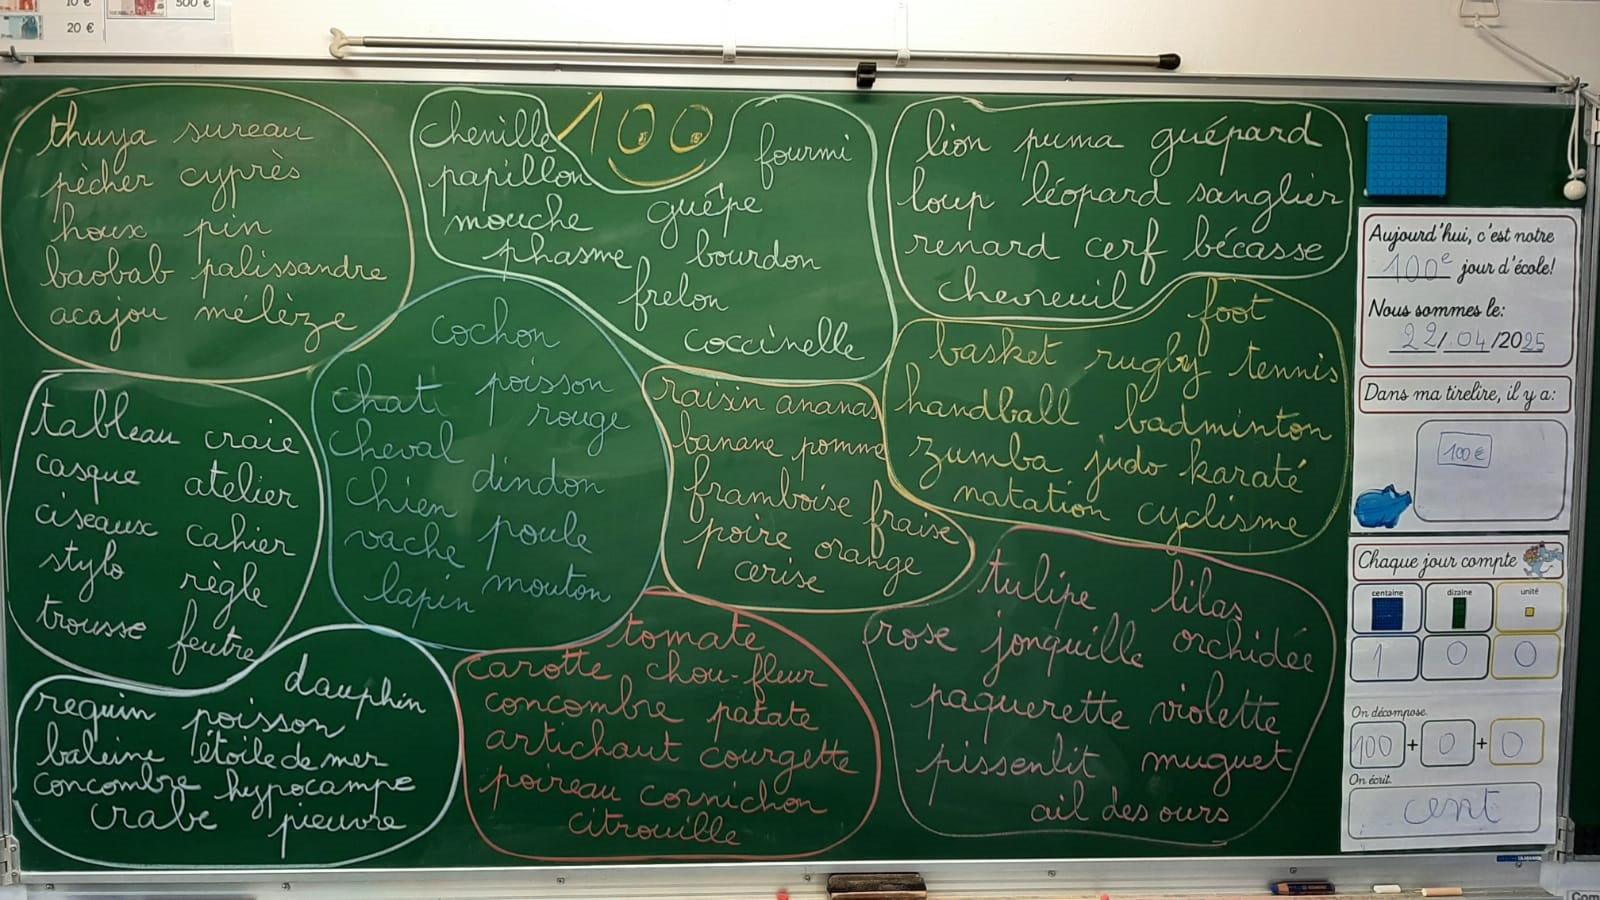 10 €
20 €
500 €
100
thuya sureau
pêcher cyprès
houx pin
baobab palissandre
acajou mélèze
chenille
fourmi
papillon
mouche guêpe
phasme bourdon
frelon
coccinelle
lion puma guépard
loup léopard sanglier
renard cerf bécasse
chevreuil
cochon
chat poisson
rouge
cheval
dindon
chien
vache poule
lapin mouton
foot
basket rugby tennis
handball badminton
zumba judo karaté
natation cyclisme
tableau craie
casque atelier
ciseaux cahier
stylo règle
trousse feutre
raisin ananas
banane pomme
framboise fraise
poire orange
cerise
dauphin
requin poisson
baleine étoile de mer
concombre hypocampe
crabe pieuvre
tomate
carotte chou-fleur
concombre patate
artichaut courgette
poireau cornichon
citrouille
tulipe lilas
rose jonquille orchidée
paquerette violette
pissenlit muguet
ail des ours
Aujourd'hui, c'est notre
100e jour d'école!
Nous sommes le:
22/04/2025
Dans ma tirelire, il y a:
100 €
Chaque jour compte
centaine dizaine unité
1 0 0
On décompose.
100 + 0 + 0
On écrit.
cent